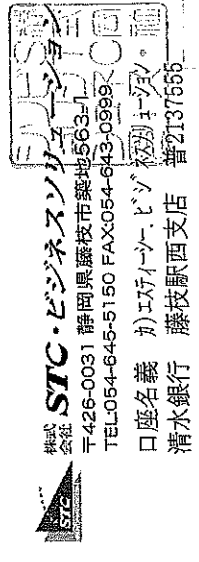 STC
株式会社 STC・ビジネスソリューション
〒426-0031 静岡県藤枝市築地563-1
TEL:054-645-5150 FAX:054-643-0999
口座名義 カ)エスティーシー.ビジネスソリューション
清水銀行 藤枝駅西支店 普2137555